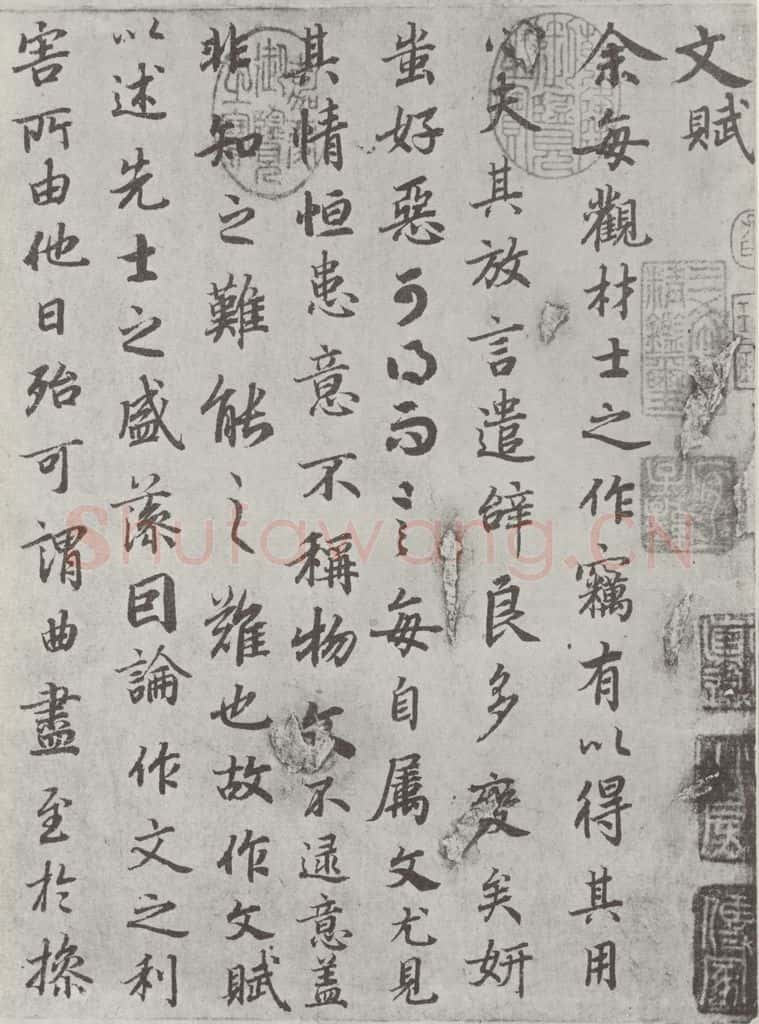 文賦
余每觀材士之作竊有以得其用
心夫其放言遣辭良多變矣妍
蚩好惡可得而言每自属文尤見
其情恒患意不稱物文不逮意盖
非知之難能之難也故作文賦
以述先士之盛藻因論作文之利
害所由他日殆可謂曲盡至於操
Shufawang.CN